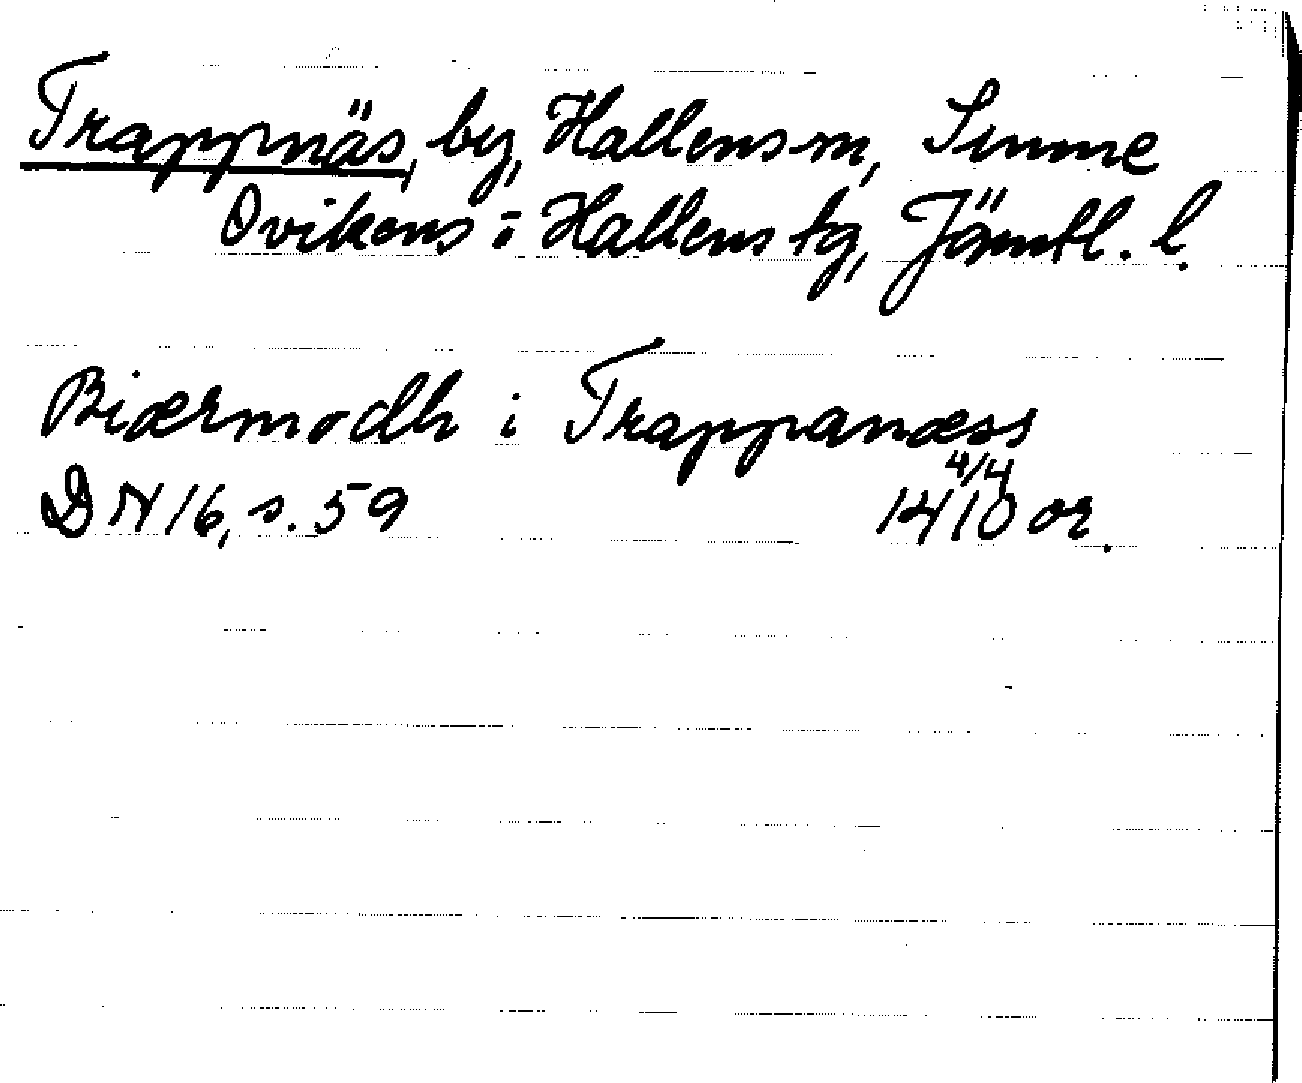 Trappnäs, by, Hallens sn, Sunne
Ovikens o Hallens tg, Jämtl. l.
Biærmodh i Trappanæss
DN 16, s. 59 4/4 1410 or.